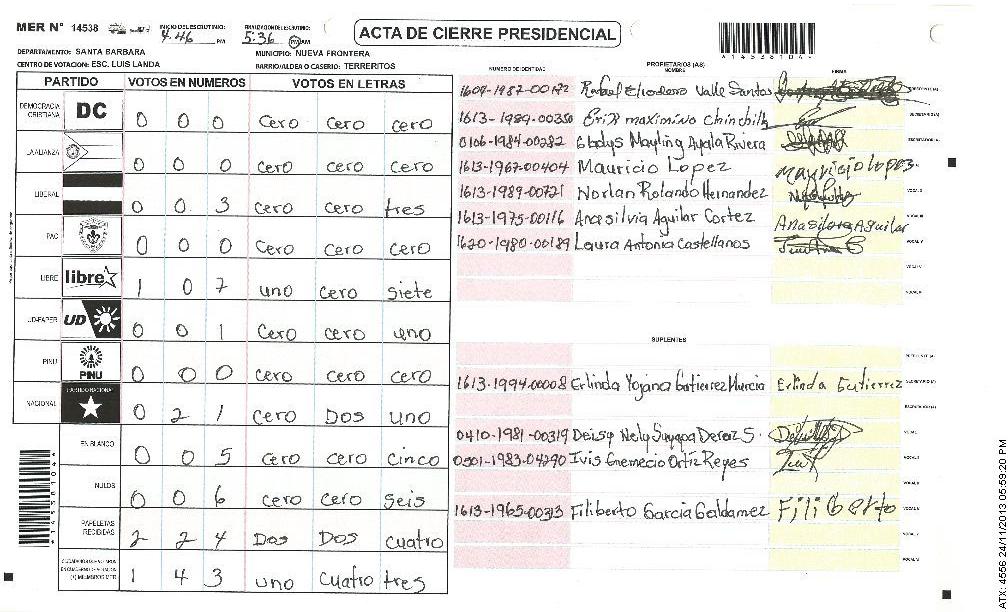 MER N° 14538 INICIO DEL ESCRUTINIO: 4:46 PM FINALIZACION ESCRUTINIO: 5:36 PM AM
ACTA DE CIERRE PRESIDENCIAL
*14538104*
DEPARTAMENTO: SANTA BARBARA MUNICIPIO: NUEVA FRONTERA
CENTRO DE VOTACION: ESC. LUIS LANDA BARRIO/ALDEA O CASERIO: TERRERITOS
PARTIDO VOTOS EN NUMEROS VOTOS EN LETRAS
DEMOCRACIA CRISTIANA DC 0 0 0 cero cero cero
LA ALIANZA 0 0 0 cero cero cero
LIBERAL 0 0 3 cero cero tres
PAC 0 0 0 cero cero cero
LIBRE libre 1 0 7 uno cero siete
UD-FAPER UD 0 0 1 cero cero uno
PINU PINU 0 0 0 cero cero cero
NACIONAL PARTIDO NACIONAL 0 2 1 cero Dos uno
EN BLANCO 0 0 5 cero cero cinco
NULOS 0 0 6 cero cero seis
PAPELETAS RECIBIDAS 2 2 4 Dos Dos cuatro
1 4 3 uno cuatro tres
*14538104*
NUMERO DE IDENTIDAD PROPIETARIOS (AS) NOMBRE FIRMA
Rafael Valle Santos
1613-1989-00350 Erik maximino chinchilla
0106-1984-00282 Gladys Mayling Ayala Riviera
1613-1967-00404 Mauricio Lopez Mauricio lopez
1613-1989-00721 Norlan Rolando Hernandez
1613-1975-00116 Anasilvia Aguilar Cortez Anasilvia Aguilar
1620-1980-00189 Laura Antonia Castellanos
SUPLENTES
1613-1994-00008 Erlinda Yojana Gutierrez Murcia Erlinda Gutierrez
0410-1981-00319 Deisy
0501-1983-04290 Ivis Ortiz Reyes
1613-1965-00313 Filiberto Garcia Galdamez Filiberto
ATX: 4556 24/11/2013 05:59:20 PM